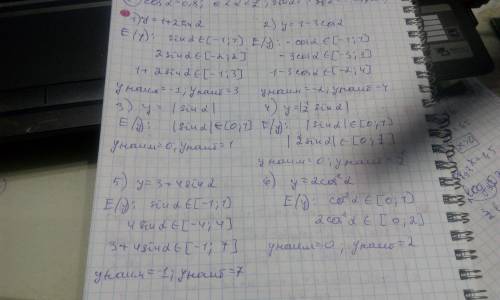 1) y = 1 + 2 sin α
E(y): sin α ∈ [-1; 1]
2 sin α ∈ [-2; 2]
1 + 2 sin α ∈ [-1; 3]
y наим = -1; y наиб = 3
2) y = 1 - 3 cos α
E(y): - cos α ∈ [-1; 1]
-3 cos α ∈ [-3; 3]
1 - 3 cos α ∈ [-2; 4]
y наим = -2, y наиб = 4
3) y = |sin α|
E(y): |sin α| ∈ [0; 1]
y наим = 0, y наиб = 1
4) y =
E(y): |sin α| ∈ [0; 1]
y наим = 0, y наиб =
5) y = 3 + 4 sin α
E(y): sin α ∈ [-1; 1]
4 sin α ∈ [-4; 4]
3 + 4 sin α ∈ [-1; 7]
y наим = -1; y наиб = 7
6) y = 2 cos² α
E(y): cos² α ∈ [0; 1]
2 cos² α ∈ [0, 2]
y наим = 0, y наиб = 2